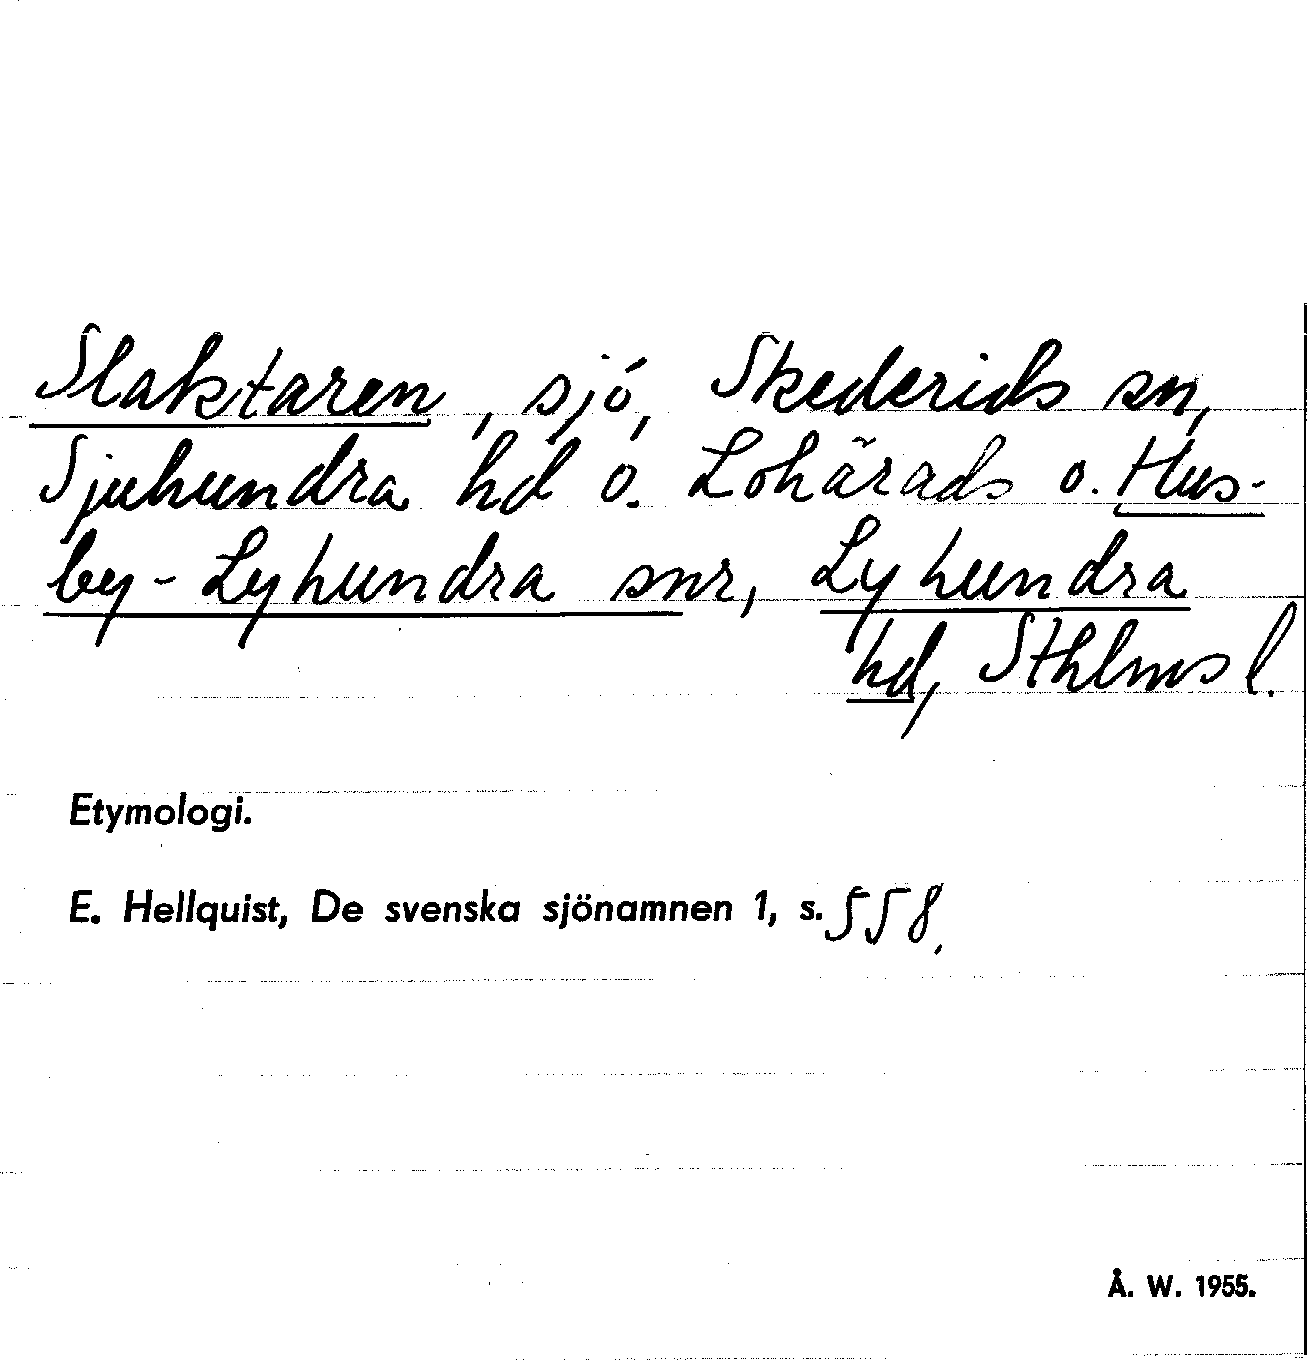 Slaktaren, sjö, Skederids sn,
Sjuhundra hd o. Lohärads o. Hus-
by-Lyhundra snr, Lyhundra
hd, Sthlms l.
Etymologi.
E. Hellquist, De svenska sjönamnen 1, s. 558.
Å. W. 1955.